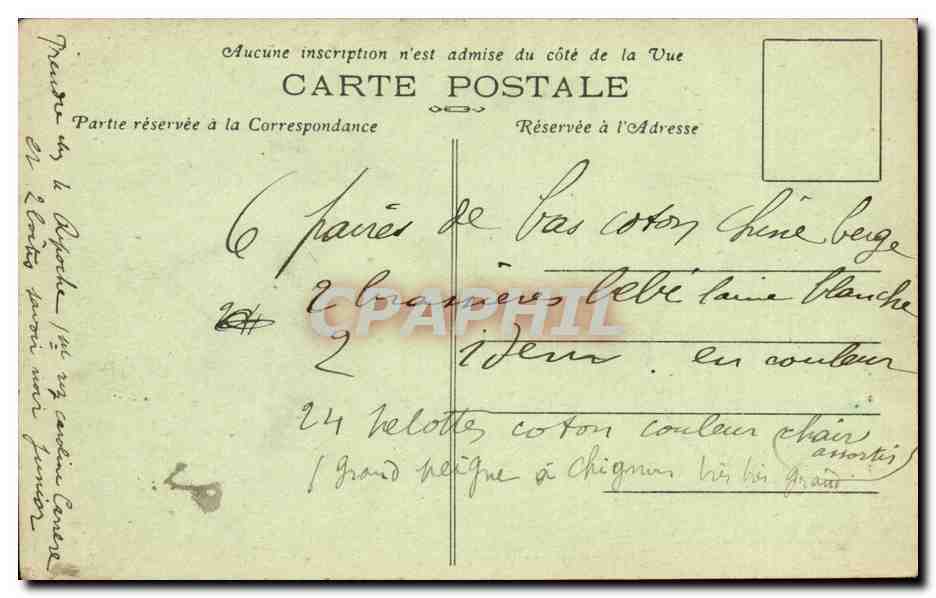 Aucune inscription n'est admise du côté de la Vue
CARTE POSTALE
Partie réservée à la Correspondance
Réservée à l'Adresse
6 paires de bas coton chiné beige
2 brassières bébé laine blanche
2 idem en couleur
24 pelottes coton couleur (chair
assortis)
1 grand peigne à chignon très très grand
Prendre chez le 1 caroline
et 2 boites savoir noir junior
CPAPHIL